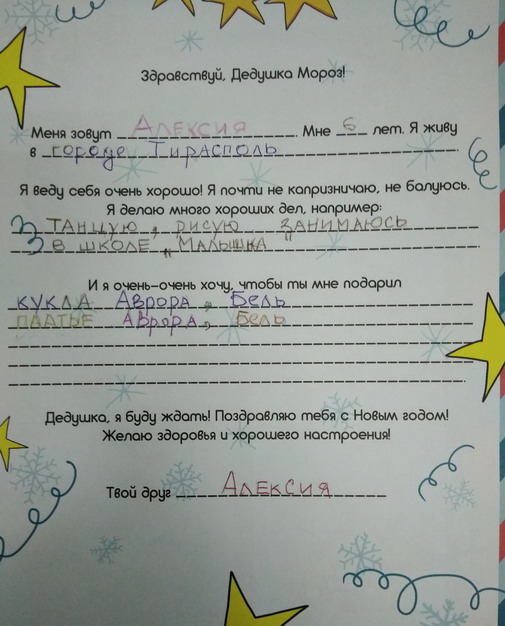 Здравствуй, Дедушка Мороз!
Меня зовут Алексия. Мне 6 лет. Я живу
в городе Тирасполь.
Я веду себя очень хорошо! Я почти не капризничаю, не балуюсь.
Я делаю много хороших дел, например:
Танцую, рисую занимаюсь
в школе, "Малышка".
И я очень-очень хочу, чтобы ты мне подарил
кукла Аврора, Бель
платье Аврора, Бель
Дедушка, я буду ждать! Поздравляю тебя с Новым годом!
Желаю здоровья и хорошего настроения!
Твой друг Алексия